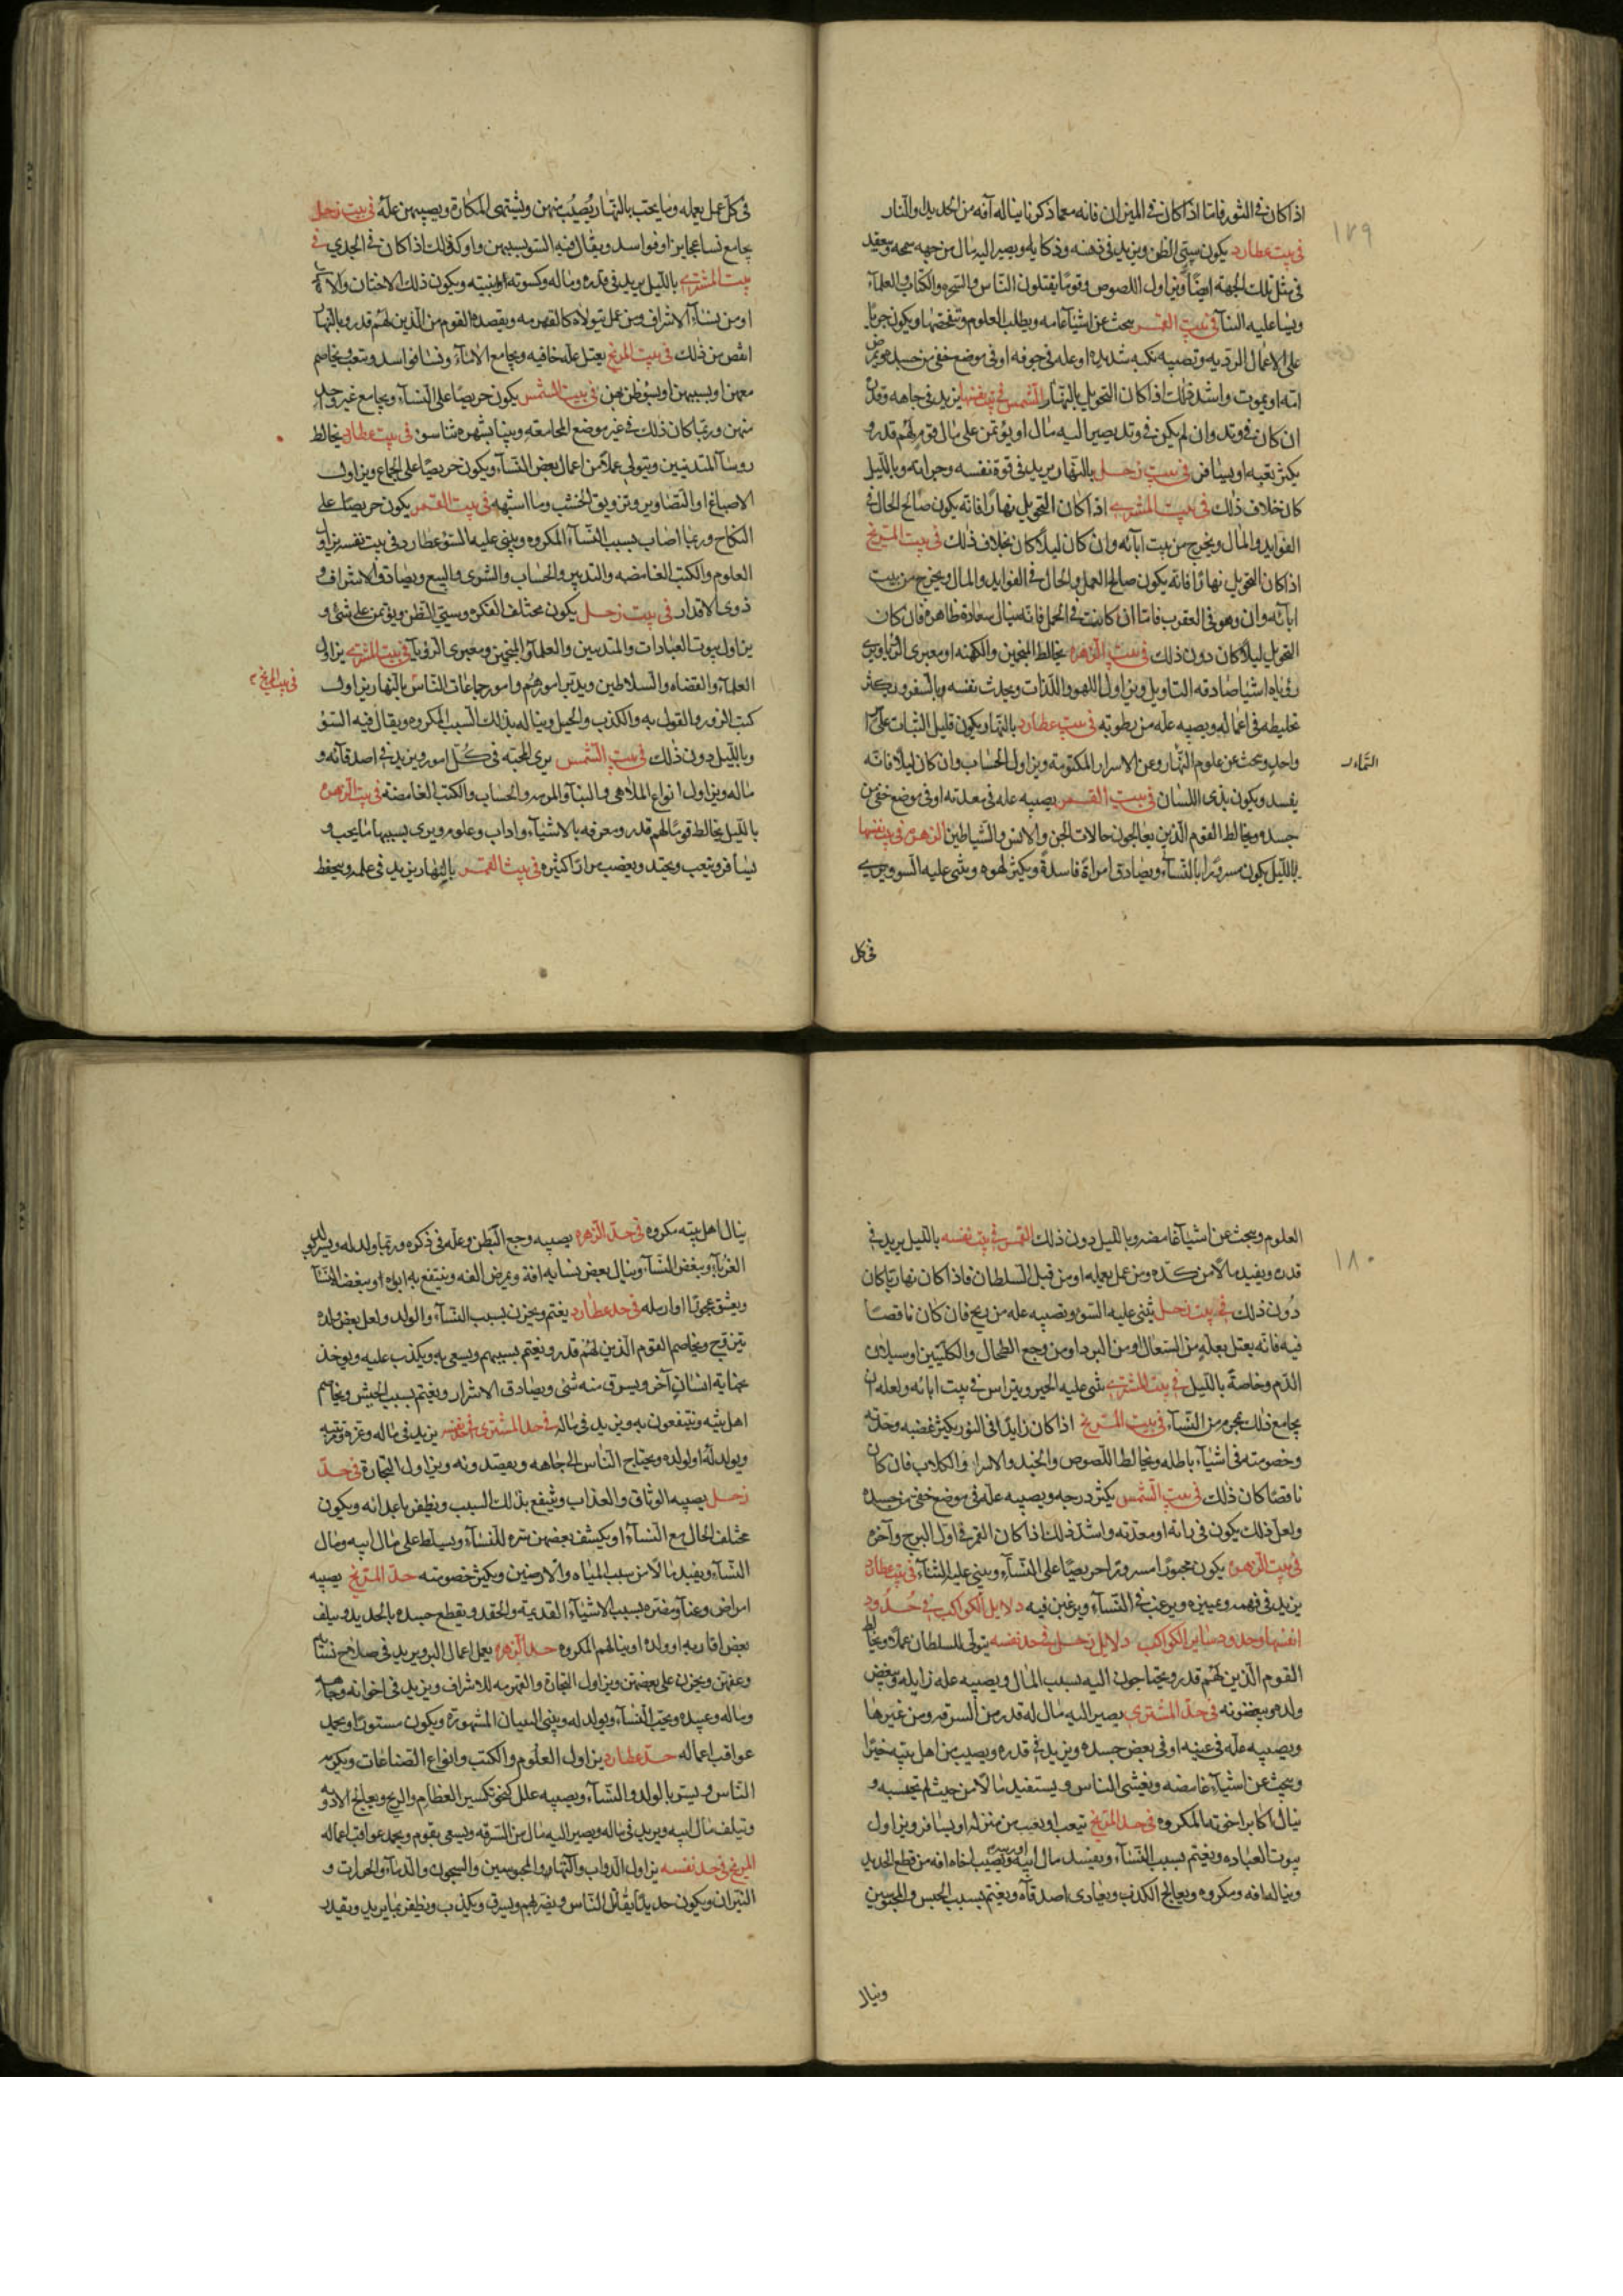 ١٧٩
اذا كان فى الثور فامّا اذا كان فى الميزان فانه مع ما ذكرنا يناله آفه من الحديد والنار
فى بيت عطارد يكون سيّئ الظن ويزيد فى ذهنه وذكائه ويصير اليه مال من جهه
فى مثل تلك الجهة ايضًا ويزاول اللصوص وقومًا يقتلون الناس والسحره والكتاب والعلمآء
عليه فى بيت القمر يبحث عن اشيآء غامضه ويطلب العلوم ويكون
على الاعمال الرديه وتصيبه نكبه شديده او علّه فى جوفه او فى موضع خفى من جسده
امّه او يموت واشد ذلك اذا كان التحويل بالنهار الشمس فى بيت نفسها يزيد فى جاهه وقدره
ان كان فى وتد وان لم يكن فى وتد يصير اليه مال او يؤتمن على مال قوم لهم قدر و
يكثر تعبه او يسافر فى بيت زحل بالنهار يزيد فى قوة نفسه وبالليل
كان خلاف ذلك فى بيت المشترى اذا كان التحويل نهارًا فانه يكون صالح الحال فى
الفوايد والمال ويخرج من بيت ابآئه وان كان ليلًا كان بخلاف ذلك فى بيت المريخ
اذا كان التحويل نهارًا فانه يكون صالح العمل والحال فى الفوايد والمال ويخرج من بيت
ابآئه وان وهو فى العقرب فاما ان كانت فى الحمل فانه ينال سعادة ظاهره فان كان
التحويل ليلًا كان دون ذلك فى بيت الزهره يخالط المنجمين والكهنه او معبرى الرؤيا ويرى
رؤياه اشيا صادقه التاويل ويزاول اللهو واللذات ويحدث نفسه بالسفر ويكثر
تخليطه فى اعماله ويصيبه علّه من رطوبه فى بيت عطارد بالنهار يكون قليل الثبات على
واحد ويبحث عن علوم وعن الاسرار المكتومة ويزاول الحساب وان كان ليلًا فانه
يفسد ويكون بذى اللسان فى بيت القمر يصيبه علّه فى معدته او فى موضع خفى من
جسده ويخالط القوم الذين يعالجون حالات الجن والانس والشياطين الزهره فى بيت نفسها
بالليل يكون مسرورًا بالنسآء ويصادق امراة فاسدة ويكثر لهوه ويثنى عليه السوء ويزيد
فى كل
فى كل عمل يعمله وما يحب بالنهار يصيب منهن ويشتهى المكاره ويصيبه من علّة فى بيت زحل
يجامع نسا عجايز او فواسد ويقال فيه السوء بسببهن واوكد ذلك اذا كان فى الجدي فى
بيت المشترى بالليل يزيد فى قدره وماله وكسوته وابنيته ويكون ذلك
او من نسآء الاشراف ومن عمل يتولاه كالقهرمه ويقصده القوم من الذين لهم قدر وبالنهار
انقص من ذلك فى بيت المريخ يعتل علّه خافيه ويجامع الامآء ونسا فواسد ويتعب ويخاصم
معهن او بسببهن او يسوء ظن بهن فى بيت الشمس يكون حريصًا على النسآء ويجامع غير واحده
منهن وربما كان ذلك فى غير موضع المجامعه فى بيت عطارد يخالط
روسآ المتدينين ويتولى عملًا من اعمال بعض النسآء ويكون حريصًا على الجماع ويزاول
الاصباغ او التصاوير وتزويق الخشب وما اشبهه فى بيت القمر يكون حريصًا على
النكاح وربما اصاب بسبب النسآء المكروه ويثنى عليه السوء عطارد فى بيت نفسه يزاول
العلوم والكتب الغامضه والتدبير والحساب والشرى والبيع ويصادق الاشراف و
ذوى الاقدار فى بيت زحل يكون مختلف الفكر وسيّئ الظن ويؤتمن على شئ و
يزاول بيوت العبادات والمتدينين والعلمآء والمنجمين ومعبرى الرؤيآ فى بيت المشترى يزاول
العلمآء والقضاه والسلاطين ويدبر امورهم وامور جماعات الناس بالنهار يزاول
فى بيت المريخ
كتب الزور والقول به والكذب والحيل ويناله بذلك السبب المكروه ويقال فيه السوء
وبالليل دون ذلك فى بيت الشمس يرى المحبة فى كل امور ويزيد فى اصدقآئه و
ماله ويزاول انواع الملاهى والبنآء والحساب والكتب الغامضة فى بيت الزهرة
بالليل يخالط قومًا لهم قدر ومعرفه بالاشيآء واداب وعلوم ويرى بسببها ما يحب و
يسافر ويتعب ويجتهد ويغضب مرارًا كثيره فى بيت القمر بالنهار يزيد فى علمه ويحفظ
١٨٠
العلوم ويبحث عن اشيآء غامضه وبالليل دون ذلك القمر فى بيت نفسه بالليل يزيد فى
قدره ويفيد مالًا من كدّه ومن عمل يعمله او من قبل السلطان فاذا كان نهارًا كان
دون ذلك فى بيت زحل يثنى عليه السوء ويصيبه علّه من ريح فان كان ناقصًا
فيه فانه يعتل بعلّه من السعال او من البرد او من وجع الطحال والكليتين او سيلان
الدم وخاصة بالليل فى بيت المشترى يثنى عليه الخير ويتراس فى بيت ابائه ولعله ان
يجامع ذات محرم من النسآء فى بيت المريخ اذا كان زايدًا فى النور يكثر غضبه وحدّته
وخصومته فى اشيآء باطله ويخالط اللصوص والجند والاشرار والكلاب فان كان
ناقصًا كان ذلك فى بيت الشمس يكثر ويصيبه علّه فى موضع خفى من جسده
ولعل ذلك يكون فى او معدته واشد ذلك اذا كان القمر فى اول البرج وآخره
فى بيت الزهره يكون محبوبًا مسرورًا حريصًا على النسآء ويثنى عليه الثنآء فى بيت عطارد
يزيد فى فهمه وتمييزه ويرغب فى النسآء ويرغبن فيه دلايل الكواكب فى حدود
انفسها وحدود ساير الكواكب دلايل زحل فى حد نفسه يتولى للسلطان عملًا ويخالط
القوم الذين لهم قدر ويحتاجون اليه بسبب المال ويصيبه علّه زايله ويبغض
ولده ويبغضونه فى حدّ المشترى يصير اليه مال له قدر من السرقه ومن غيرها
ويصيبه علّه فى عينيه او فى بعض جسده ويزيد فى قدره ويصيب من اهل بيته خيرًا
ويبحث عن اشيآء غامضه ويغشى الناس ويستفيد مالًا من حيث لم يحتسبه و
ينال اكابر اخوته المكروه فى حد المريخ يتعب او يغيب من منزله او يسافر ويزاول
بيوت العباده ويغتم بسبب النسآء ويفسد مال ابيه ويصيب اخاه افه من قطع الحديد
ويناله افه ومكروه ويعالج الكذب ويعادى اصدقآه ويغتم بسبب الحبس والمحبوسين
وينال
ينال اهل بيته مكروه فى حدّ الزهره يصيبه وجع البطن وعلّه فى ذكره وربما ولد له
الغربآء ويبغض النسآء وينال بعض نسايه افة ويمرض الفه وينتفع به ابواه او ببغض النسآ
ويعشق عجوزًا او ارمله فى حد عطارد يغتم ويحزن بسبب النسآء والولد ولعل بعض ولده
يتزوج ويخاصم القوم الذين لهم قدر ويغتم بسببهم ويسعى به ويكذب عليه ويؤخذ
بجناية انسان آخر ويسرق منه شئ ويصادق الاشرار ويغتم بسبب الحبس ويخاصم
اهل بيته وينتفعون به ويزيد فى ماله المشترى فى حد نفسه يزيد فى ماله وعزه
ويولد له او لولده ويحتاج الناس الى جاهه ويقصدونه ويزاول التجارة فى حدّ
زحل يصيبه الوثاق والعذاب وينتفع بذلك السبب ويظفر باعدائه ويكون
مختلف الحال مع النسآء او يكشف بعضهن سره للنسآء ويسلط على مال ابيه ومال
النسآء ويفيد مالًا من سبب المياه والارضين ويكثر خصومته حدّ المريخ يصيبه
امراض وعنآء ومضره بسبب الاشيآء القديمة والحقد ويقطع جسده بالحديد ويتلف
بعض اقاربه او ولده او ينالهم المكروه حد الزهره يعمل اعمال البر ويزيد فى صلاح نسائه
وعفتهن ويحزن على بعضهن ويزاول التجارة والقهرمه للاشراف ويزيد فى اخوانه وجاهه
وماله وعبيده ويحب النسآء ويولد له ويبنى البنيان المشهورة ويكون مستورًا ويحمد
عواقب اعماله حدّ عطارد يزاول العلوم والكتب وانواع الصناعات ويكرمه
الناس ويسرّ بالولد والنسآء ويصيبه علل كنحو تكسير العظام والريح ويعالج الادويه
ويتلف مال ابيه ويزيد فى ماله ويصير اليه مال من السرقه ويسعى بقوم ويحمد عواقب اعماله
المريخ فى حد نفسه يزاول الدواب والمحبوسين والسجون والدمآء والحرارت و
النيران ويكون حديدًا يقاتل الناس ويضرّ بهم ويسرق ويكذب ويظفر بما يريد ويفيد